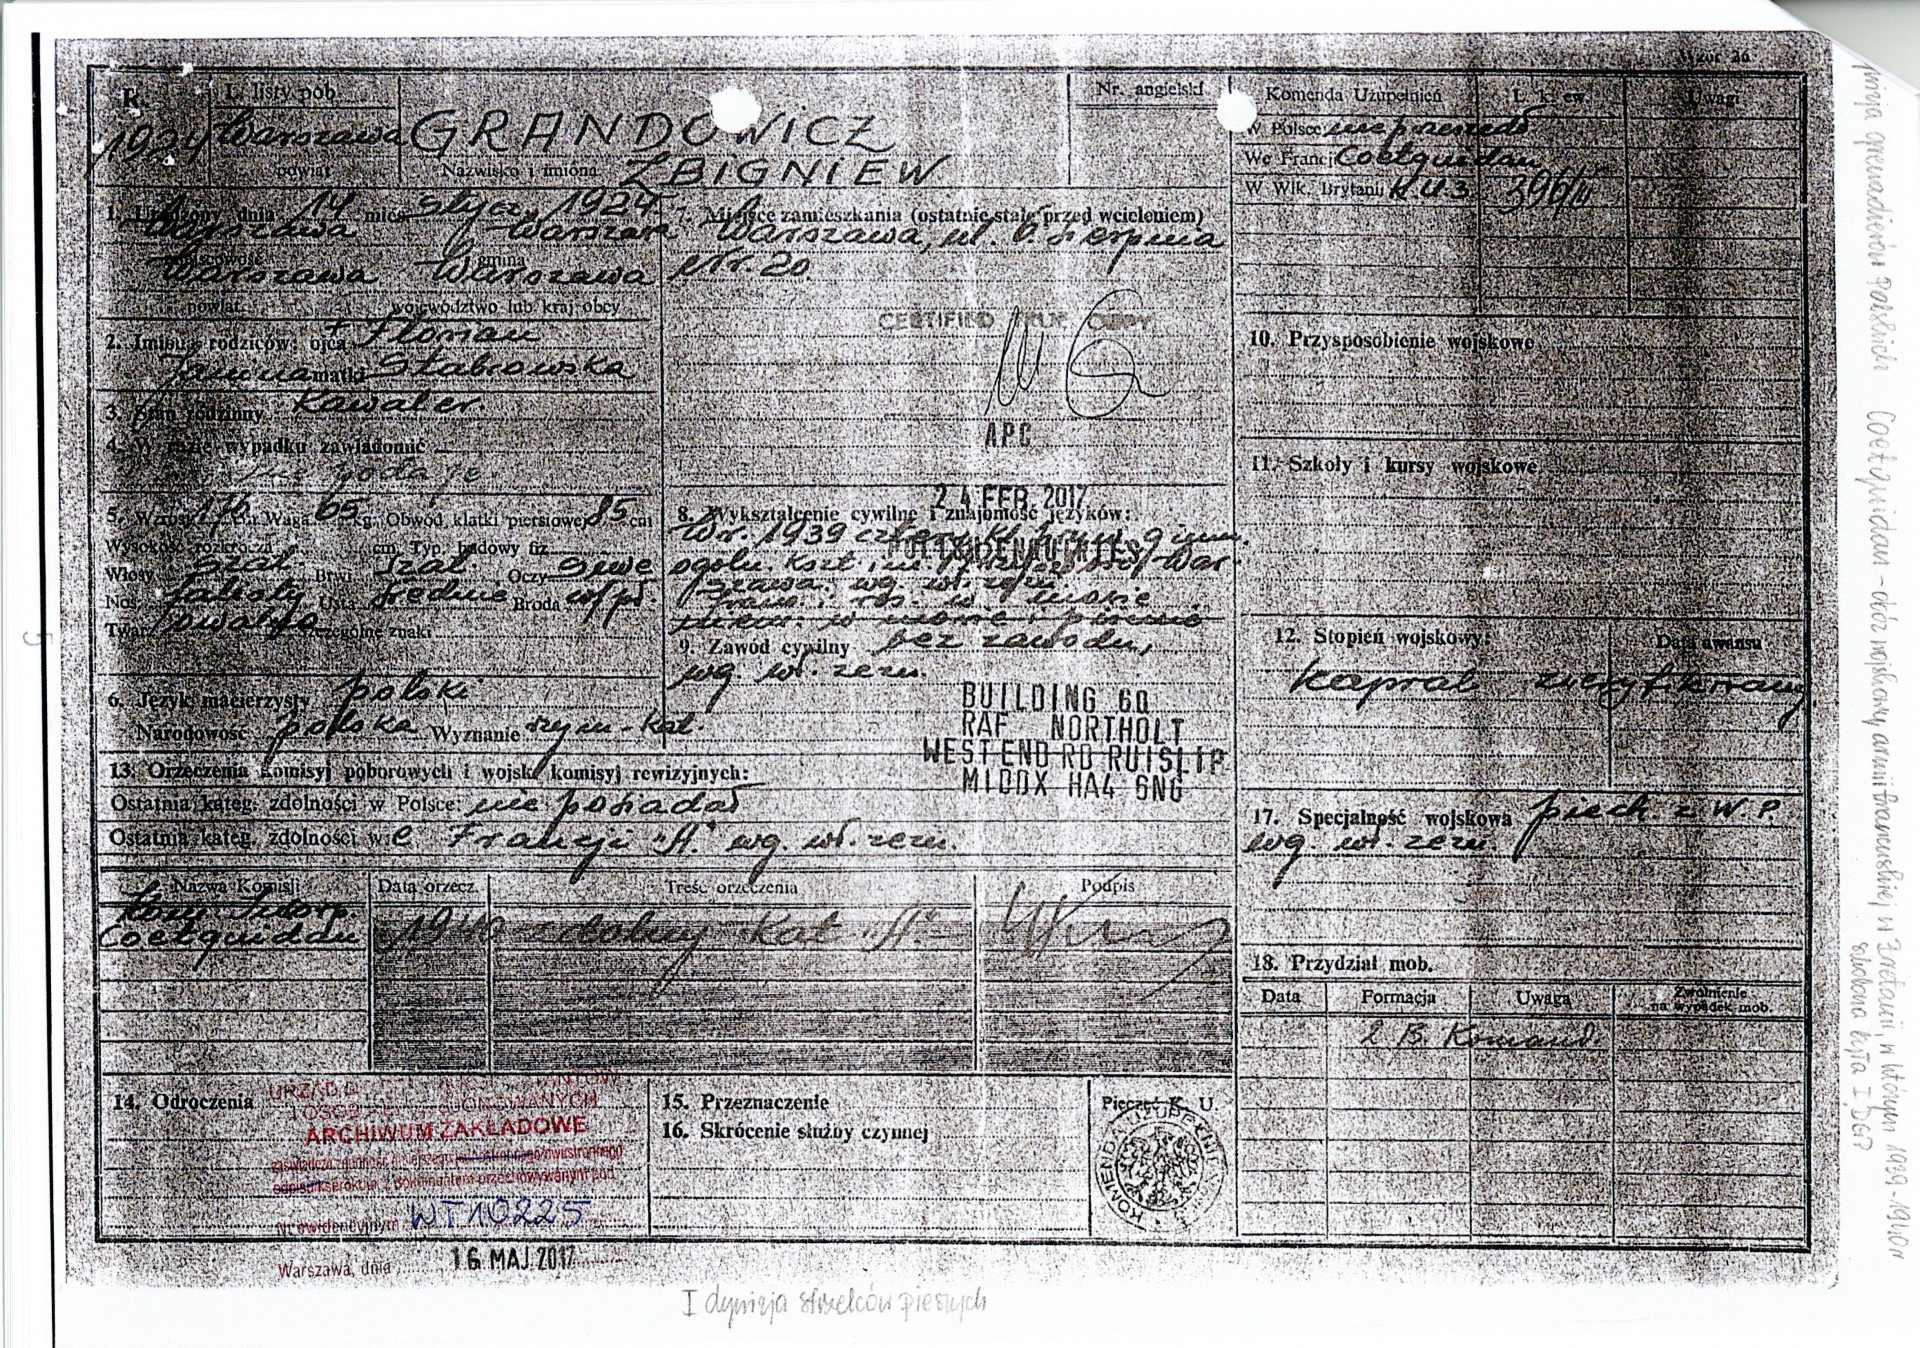 Wzór 26
R. 1924
L. listy pob.
Warszawa
powiat
GRANDOWICZ
Nazwisko i imiona ZBIGNIEW
Nr. angielski
1. Urodzony dnia 14 mies. stycz. 1924
Warszawa Warszawa
miejscowość gmina
Warszawa Warszawa
powiat województwo lub kraj obcy
2. Imiona rodziców: ojca + Florian
Janina matki Stabrowska
3. Stan rodzinny Kawaler.
4. W razie wypadku zawiadomić
nie podaje
5. Wzrost 176 cm Waga 65 kg. Obwód klatki piersiowej 85 cm
Wysokość rozkrocza cm. Typ. budowy fiz.
Włosy szat. Brwi szat. Oczy siwe
Nos Usta średnie Broda
Twarz owalna Szczególne znaki
6. Język macierzysty polski
Narodowość polska Wyznanie rzym-kat.
7. Miejsce zamieszkania (ostatnie stałe przed wcieleniem)
Warszawa, ul. 6. Sierpnia
Nr. 20
CERTIFIED TRUE COPY
APC
24 FEB 2017
8. Wykształcenie cywilne i znajomość języków:
W r. 1939 cztery kl. gimn.
ogóln. kszt. War-
szawa, wg. wł. zezn.
9. Zawód cywilny bez zawodu,
wg. wł. zezn.
BUILDING 60
RAF NORTHOLT
WEST END RD RUISLIP
MIDDX HA4 6NG
13. Orzeczenia Komisyj poborowych i wojsk. komisyj rewizyjnych:
Ostatnia kateg. zdolności w Polsce: nie posiadał
Ostatnia kateg. zdolności we Francji "A." wg. wł. zezn.
Nazwa Komisji Data orzecz. Treść orzeczenia Podpis
Coëtquidan 1940 zdolny Kat "A."
14. Odroczenia
15. Przeznaczenie
16. Skrócenie służby czynnej
Pieczęć K. U.
KOMENDA UZUPEŁNIEŃ
ARCHIWUM ZAKŁADOWE
Nr ewidencyjnym WT 10225
Warszawa, dnia 16 MAJ 2017
Komenda Uzupełnień L. k. ew. Uwagi
W Polsce nie przeszedł
We Francji Coëtquidan
W Wlk. Brytanii K.U.3 396/II
10. Przysposobienie wojskowe
11. Szkoły i kursy wojskowe
12. Stopień wojskowy: Data awansu
kapral zweryfikowany
17. Specjalność wojskowa piech. z W.P.
wg. wł. zezn.
18. Przydział mob.
Data Formacja Uwaga Zwolnienie na wypadek mob.
2 B. Komand.
I dywizja strzelców pieszych
5
grenadierów polskich Coetquidan - obóz wojskowy armii francuskiej w Bretanii, w którym 1939-1940r